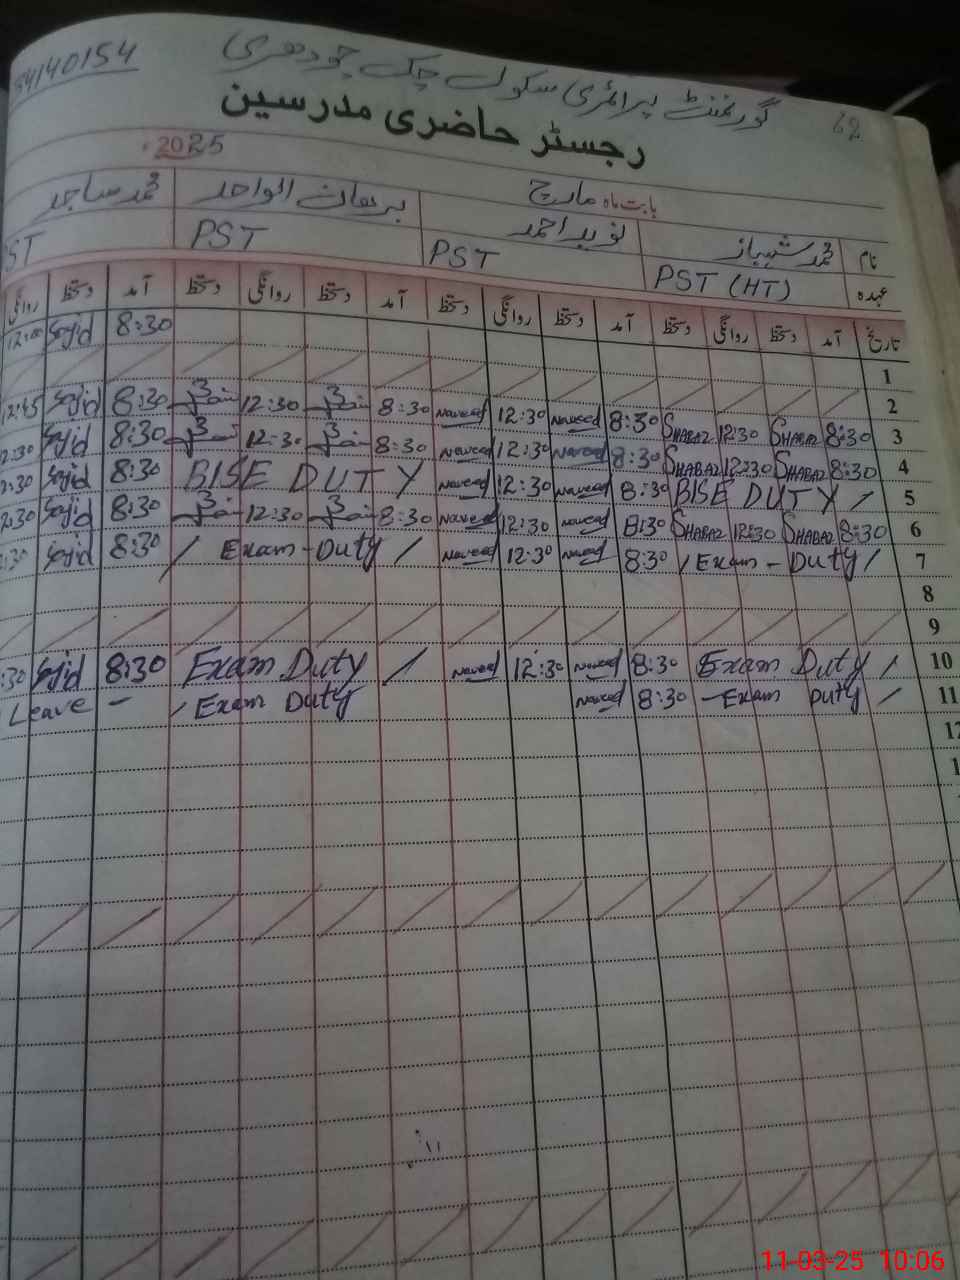 گورنمنٹ پرائمری سکول چک چودھری 62
رجسٹر حاضری مدرسین
2025
بابت ماہ مارچ
نام محمد شہباز نوید احمد برھان الواحد محمد ساجد
عہدہ PST (HT) PST PST ST
تاریخ آمد دستخط روانگی دستخط آمد دستخط روانگی دستخط آمد دستخط روانگی دستخط آمد دستخط روانگی
1 8:30 Sajid 12:00
2
3 8:30 Shabaz 12:30 Shabaz 8:30 naveed 12:30 naveed 8:30 12:30 8:30 Sajid 12:45
4 8:30 Shabaz 12:30 Shabaz 8:30 naveed 12:30 naveed 8:30 12:30 8:30 Sajid 2:30
5 BISE DUTY 8:30 naveed 12:30 naveed BISE DUTY 8:30 Sajid 2:30
6 8:30 Shabaz 12:30 Shabaz 8:30 naveed 12:30 naveed 8:30 12:30 8:30 Sajid 2:30
7 Exam - Duty 8:30 naveed 12:30 naveed Exam - Duty 8:30 Sajid :30
8
9
10 Exam Duty 8:30 naveed 12:30 naveed Exam Duty 8:30 Sajid :30
11 Exam Duty 8:30 naveed Exam Duty - Leave
11-03-25 10:06